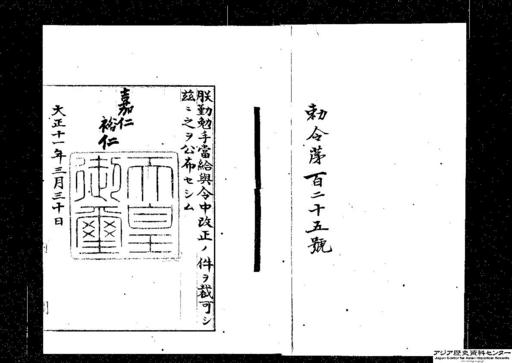 勅令第百二十五號
朕勤勉手當給與令中改正ノ件ヲ裁可シ
茲ニ之ヲ公布セシム
嘉仁
裕仁
天皇
御璽
大正十一年三月三十日
アジア歴史資料センター
Japan Center for Asian Historical Records